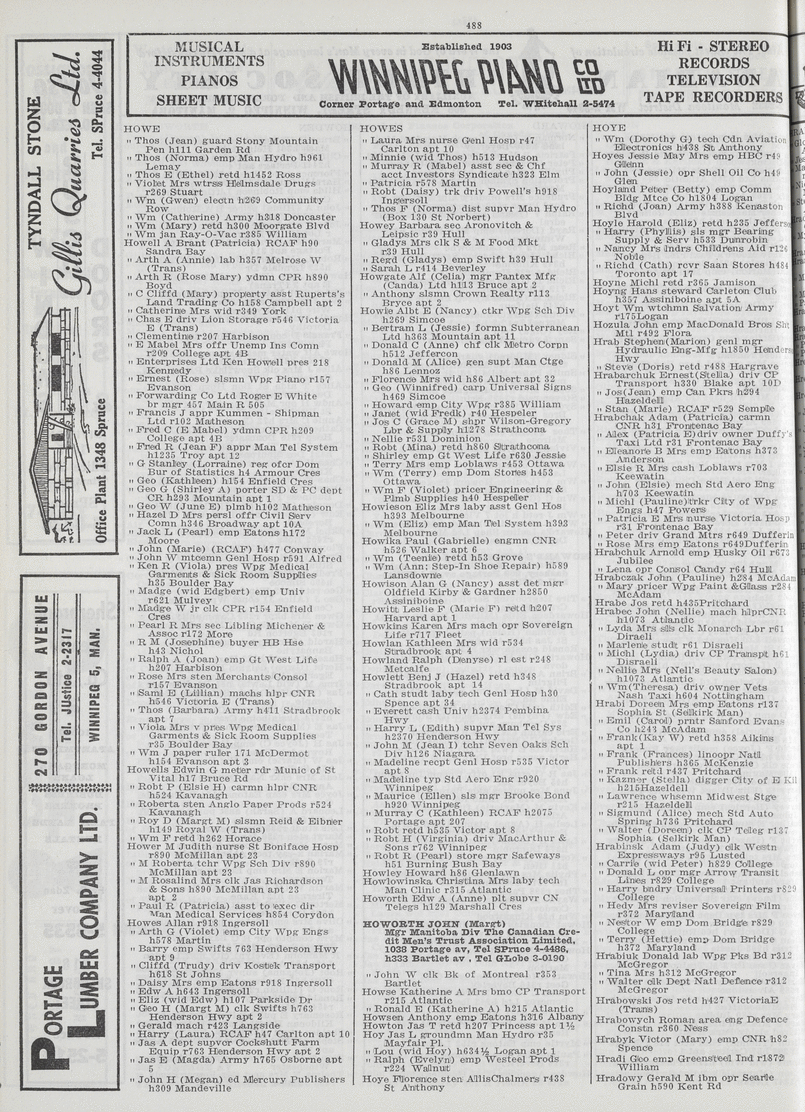 488
MUSICAL
INSTRUMENTS
PIANOS
SHEET MUSIC
Established 1903
WINNIPEG PIANO CO LTD
Corner Portage and Edmonton Tel. WHitehall 2-5474
Hi Fi - STEREO
RECORDS
TELEVISION
TAPE RECORDERS
TYNDALL STONE
Gillis Quarries Ltd.
Office Plant 1348 Spruce
Tel. SPruce 4-4044
PORTAGE
LUMBER COMPANY LTD.
270 GORDON AVENUE
Tel. JUstice 2-2317
WINNIPEG 5, MAN.
HOWE
" Thos (Jean) guard Stony Mountain
Pen h111 Garden Rd
" Thos (Norma) emp Man Hydro h961
Lemay
" Thos E (Ethel) retd h1452 Ross
" Violet Mrs waitress Helmsdale Drugs
r269 Stuart
" Wm (Gwen) electn h269 Community
Row
" Wm (Catherine) Army h318 Doncaster
" Wm (Mary) retd h300 Moorgate Blvd
" Wm jan Ray-O-Vac r285 William
Howell A Brant (Patricia) RCAF h90
Sandra Bay
" Arth A (Annie) lab h357 Melrose W
(Trans)
" Arth R (Rose Mary) ydmn CPR h890
Boyd
" C Cliffd (Mary) property asst Rupert's
Land Trading Co h158 Campbell apt 2
" Catherine Mrs wid r349 York
" Chas E driv Lion Storage r546 Victoria
E (Trans)
" Clementine r207 Harbison
" E Mabel Mrs offr Unemp Ins Comn
r209 College apt 4B
" Enterprises Ltd Ken Howell pres 218
Kennedy
" Ernest (Rose) slsmn Wpg Piano r157
Evanson
" Forwarding Co Ltd Roger E White
br mgr 457 Main R 505
" Francis J appr Kummen - Shipman
Ltd r102 Matheson
" Fred C (E Mabel) ydmn CPR h209
College apt 4B
" Fred R (Jean F) appr Man Tel System
h1235 Troy apt 12
" G Stanley (Lorraine) reg ofcr Dom
Bur of Statistics h4 Armour Cres
" Geo (Kathleen) h154 Enfield Cres
" Geo G (Shirley A) porter SD & PC dept
CR h293 Mountain apt 1
" Geo W (June E) plmb h102 Matheson
" Hazel D Mrs persl offr Civil Serv
Comn h346 Broadway apt 10A
" Jack L (Pearl) emp Eatons h172
Moore
" John (Marie) (RCAF) h477 Conway
" John W mtcemn Genl Hosp r591 Alfred
" Ken R (Viola) pres Wpg Medical
Garments & Sick Room Supplies
h35 Boulder Bay
" Madge (wid Edgbert) emp Univ
r621 Mulvey
" Madge W jr clk CPR r154 Enfield
Cres
" Pearl R Mrs sec Libling Michener &
Assoc r172 More
" R M (Josephine) buyer HB Hse
h43 Nichol
" Ralph A (Joan) emp Gt West Life
h207 Harbison
" Rose Mrs sten Merchants Consol
r157 Evanson
" Saml E (Lillian) machs hlpr CNR
h546 Victoria E (Trans)
" Thos (Barbara) Army h411 Stradbrook
apt 7
" Viola Mrs v pres Wpg Medical
Garments & Sick Room Supplies
r35 Boulder Bay
" Wm J paper ruler 171 McDermot
h154 Evanson apt 3
Howells Edwin G meter rdr Munic of St
Vital h17 Bruce Rd
" Robt P (Elsie H) carmn hlpr CNR
h524 Kavanagh
" Roberta sten Anglo Paper Prods r524
Kavanagh
" Roy D (Margt M) slsmn Reid & Eibner
h149 Royal W (Trans)
" Wm F retd h262 Horace
Hower M Judith nurse St Boniface Hosp
r890 McMillan apt 23
" M Roberta tchr Wpg Sch Div r890
McMillan apt 23
" M Rosalind Mrs clk Jas Richardson
& Sons h890 McMillan apt 23
apt 2
" Paul R (Patricia) asst to exec dir
Man Medical Services h854 Corydon
Howes Allan r918 Ingersoll
" Arth G (Violet) emp City Wpg Engs
h578 Martin
" Barry emp Swifts 763 Henderson Hwy
apt 9
" Cliffd (Trudy) driv Kostek Transport
h618 St Johns
" Daisy Mrs emp Eatons r918 Ingersoll
" Edw A h643 Ingersoll
" Eliz (wid Edw) h107 Parkside Dr
" Geo H (Margt M) clk Swifts h763
Henderson Hwy apt 2
" Gerald mach r423 Langside
" Harry (Laura) RCAF h47 Carlton apt 10
" Jas A dept supvcr Cockshutt Farm
Equip r763 Henderson Hwy apt 2
" Jas E (Magda) Army h765 Osborne apt
5
" John H (Megan) ed Mercury Publishers
h309 Mandeville
HOWES
" Laura Mrs nurse Genl Hosp r47
Carlton apt 10
" Minnie (wid Thos) h513 Hudson
" Murray R (Mabel) asst sec & Chf
acct Investors Syndicate h323 Elm
" Patricia r578 Martin
" Robt (Daisy) trk driv Powell's h918
Ingersoll
" Thos F (Norma) dist supvr Man Hydro
(Box 130 St Norbert)
Howey Barbara sec Aronovitch &
Leipsic r39 Hull
" Gladys Mrs clk S & M Food Mkt
r39 Hull
" Regd (Gladys) emp Swift h39 Hull
" Sarah L r414 Beverley
Howgate Alf (Celia) mgr Pantex Mfg
(Canda) Ltd h113 Bruce apt 2
" Anthony slsmn Crown Realty r113
Bryce apt 2
Howie Albt E (Nancy) ctkr Wpg Sch Div
h269 Simcoe
" Bertram L (Jessie) formn Subterranean
Ltd h363 Mountain apt 11
" Donald C (Anne) chf clk Metro Corpn
h512 Jefferson
" Donald M (Alice) gen supt Man Ctge
h86 Lennoz
" Florence Mrs wid h86 Albert apt 32
" Geo (Winnifred) carp Universal Signs
h469 Simcoe
" Howard emp City Wpg r385 William
" Janet (wid Fredk) r40 Hespeler
" Jos C (Grace M) shpr Wilson-Gregory
Lbr & Supply h1278 Strathcona
" Nellie r531 Dominion
" Robt (Mina) retd h860 Strathcona
" Shirley emp Gt West Life r630 Jessie
" Terry Mrs emp Loblaws r453 Ottawa
" Wm (Terry) emp Dom Stores h453
Ottawa
" Wm F (Violet) pricer Engineering &
Plmb Supplies h40 Hespeler
Howieson Eliz Mrs laby asst Genl Hos
h393 Melbourne
" Wm (Eliz) emp Man Tel System h393
Melbourne
Howika Paul (Gabrielle) engmn CNR
h526 Walker apt 6
" Wm (Teenie) retd h53 Grove
" Wm (Ann; Step-In Shoe Repair) h589
Lansdowne
Howison Alan G (Nancy) asst det mgr
Oldfield Kirby & Gardner h2850
Assiniboine
Howitt Leslie F (Marie F) retd h207
Harvard apt 1
Howkins Karen Mrs mach opr Sovereign
Life r717 Fleet
Howlan Kathleen Mrs wid r534
Stradbrook apt 4
Howland Ralph (Denyse) rl est r248
Metcalfe
Howlett Benj J (Hazel) retd h348
Stradbrook apt 14
" Cath studt laby tech Genl Hosp h30
Spence apt 34
" Everett cash Univ h2374 Pembina
Hwy
" Harry L (Edith) supvr Man Tel Sys
h2370 Henderson Hwy
" John M (Jean I) tchr Seven Oaks Sch
Div h126 Niagara
" Madeline recpt Genl Hosp r535 Victor
apt 8
" Madeline typ Std Aero Eng r920
Winnipeg
" Maurice (Ellen) sls mgr Brooke Bond
h920 Winnipeg
" Murray C (Kathleen) RCAF h2075
Portage apt 207
" Robt retd h535 Victor apt 8
" Robt H (Virginia) driv MacArthur &
Sons r762 Winnipeg
" Robt R (Pearl) store mgr Safeways
h51 Burning Bush Bay
Howley Howard h86 Glenlawn
Howlowinska Christina Mrs laby tech
Man Clinic r315 Atlantic
Howorth Edw A (Anne) plt supvr CN
Telegs h129 Marshall Cres
HOWORTH JOHN (Margt)
Mgr Manitoba Div The Canadian Cre-
dit Men's Trust Association Limited,
1038 Portage av, Tel SPruce 4-4486,
h333 Bartlet av , Tel GLobe 3-0190
" John W clk Bk of Montreal r353
Bartlet
Howse Katherine A Mrs bmo CP Transport
r215 Atlantic
" Ronald E (Katherine A) h215 Atlantic
Howsen Anthony emp Eatons h316 Albany
Howton Jas T retd h207 Princess apt 1½
Hoy Jas L groundmn Man Hydro r35
Mayfair Pl.
" Lou (wid Hoy) h634½ Logan apt 1
" Ralph (Evelyn) emp Westeel Prods
r224 Walnut
Hoye Florence sten AllisChalmers r438
St Anthony
HOYE
" Wm (Dorothy G) tech Cdn Aviation
Electronics h438 St Anthony
Hoyes Jessie May Mrs emp HBC r49
Glenn
" John (Jessie) opr Shell Oil Co h49
Glen
Hoyland Peter (Betty) emp Comm
Bldg Mtce Co h1804 Logan
" Richd (Joan) Army h388 Kenaston
Blvd
Hoyle Harold (Eliz) retd h235 Jefferso
" Harry (Phyllis) sls mgr Bearing
Supply & Serv h533 Dumrobin
" Nancy Mrs lndrs Childrens Aid r126
Noble
" Richd (Cath) rcvr Saan Stores h484
Toronto apt 17
Hoyne Michl r365 Jamison
Hoyng Hans steward Carleton Club
h357 Assiniboine apt 5A
Hoyt Wm wtchmn Salvation Army
r175Logan
Hozula John emp MacDonald Bros Sht
Mtl r492 Flora
Hrab Stephen(Marion) genl mgr
Hydraulic Eng-Mfg h1850 Henders
Hwy
" Steve (Doris) retd r488 Hargrave
Hrabarchuk Ernest(Stella) driv CP
Transport h330 Blake apt 10D
" Jos(Jean) emp Can Pkrs h294
Hazeldell
" Stan (Marie) RCAF r529 Semple
Hrabchak Adam (Patricia) carmn
CNR h31 Frontenac Bay
" Alex (Patricia E)driv owner Duffy's
Taxi Ltd r31 Frontenac Bay
" Eleanore B Mrs emp Eatons h373
Anderson
" Elsie R Mrs cash Loblaws r703
Keewatin
" John (Elsie) mech Std Aero Eng
h703 Keewatin
" Michl (Pauline)trkr City of Wpg
Engs h47 Powers
" Patricia E Mrs nurse Victoria Hosp
r31 Frontenac Bay
" Peter driv Grand Mtrs r649 Dufferin
" Rose Mrs emp Eatons r649Dufferin
Hrabchuk Arnold emp Husky Oil r673
Jubilee
" Lena opr Consol Candy r64 Hull
Hrabczak John (Pauline) h284 McAdam
" Mary pricer Wpg Paint &Glass r284
McAdam
Hrabe Jos retd h435Pritchard
Hrabec John (Nellie) mach hlprCNR
h1073 Atlantic
" Lyda Mrs sls clk Monarch Lbr r61
Diraeli
" Marlene studt r61 Disraeli
" Michl (Lydia) driv CP Transpit h61
Disraeli
" Nellie Mrs (Nell's Beauty Salon)
h1073 Atlantic
" Wm(Theresa) driv owner Vets
Nash Taxi h604 Nottingham
Hrabi Doreen Mrs emp Eatons r137
Sophia St (Selkirk Man)
" Emil (Carol) prntr Sanford Evans
Co h243 McAdam
" Frank(Kay W) retd h358 Aikins
apt 1
" Frank (Frances) linoopr Natl
Publishers h365 McKenzie
" Frank retd r437 Pritchard
" Kazmer (Stella) digger City of E Kil
h215Hazeldell
" Lawrence whsemn Midwest Stge
r215 Hazeldell
" Sigmund (Alice) mech Std Auto
Spring h736 Pritchard
" Walter (Doreen) clk CP Teleg r137
Sophia (Selkirk Man)
Hrabinsk Adam (Judy) clk Westn
Expressways r95 Lusted
" Carrie (wid Peter) h829 College
" Donald L opr mgr Arrow Transit
Lines r829 College
" Harry bndry Universal Printers r829
College
" Hedy Mrs reviser Sovereign Film
r372 Maryland
" Nestor W emp Dom Bridge r829
College
" Terry (Hettie) emp Dom Bridge
h372 Maryland
Hrabiuk Donald lab Wpg Pks Bd r312
McGregor
" Tina Mrs h312 McGregor
" Walter clk Dept Natl Defence r312
McGregor
Hrabowski Jos retd h427 VictoriaE
(Trans)
Hrabowych Roman area eng Defence
Constn r360 Ness
Hrabyk Victor (Mary) emp CNR h82
Spence
Hradi Geo emp Greensteel Ind r1872
William
Hradowy Gerald M ibm opr Searle
Grain h590 Kent Rd